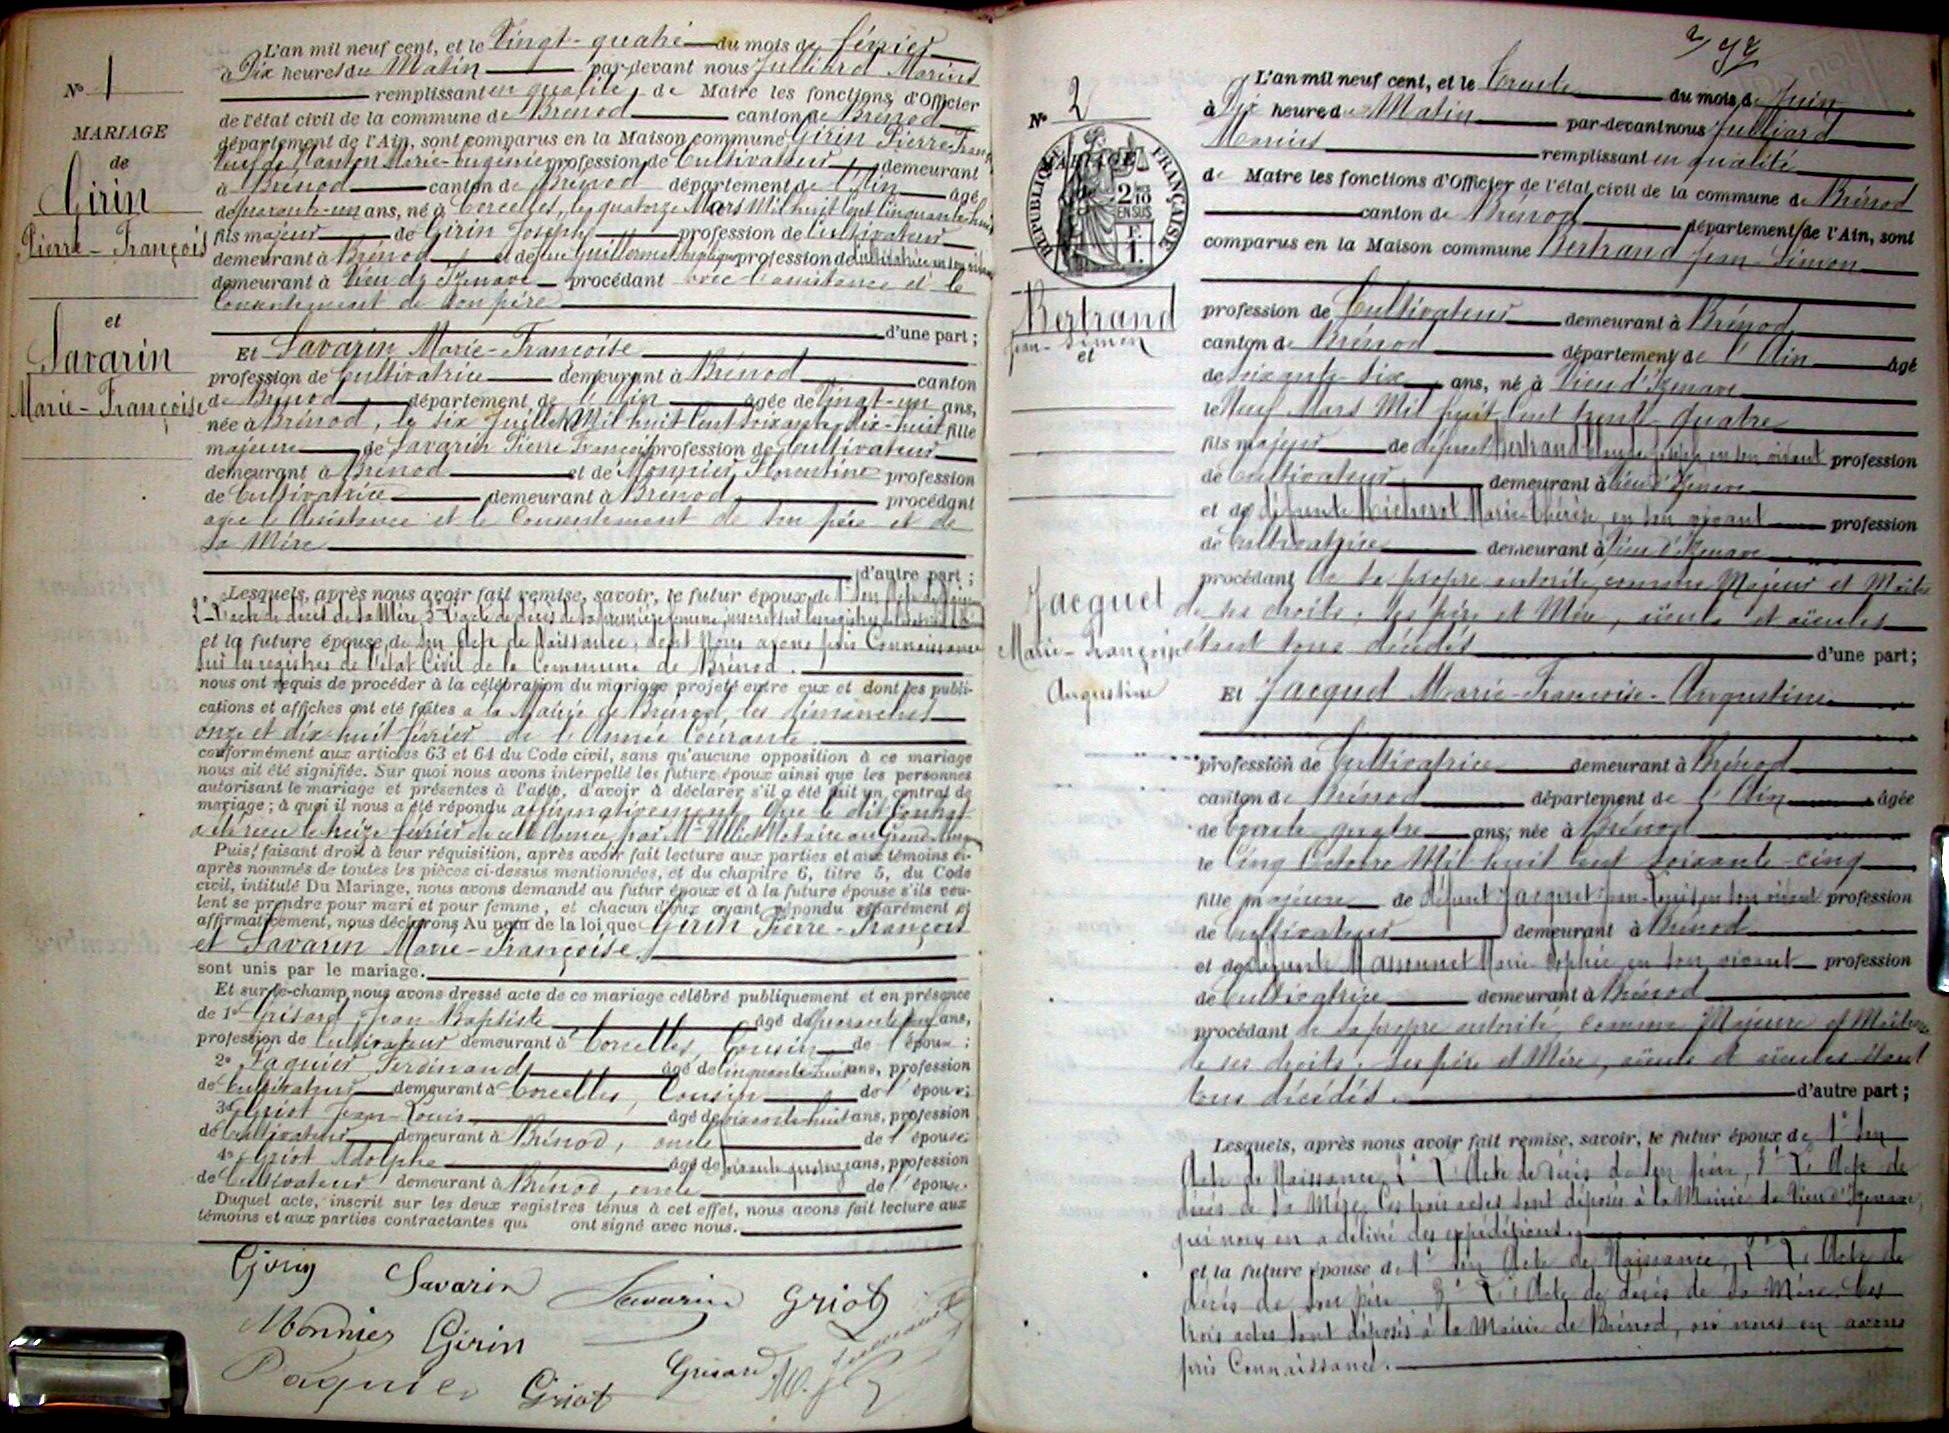 N° 1
MARIAGE
de
Girin
Pierre-François
et
Savarin
Marie-Françoise
L'an mil neuf cent, et le Vingt-quatre du mois de février
à Dix heures du Matin par-devant nous Julliard Marius
remplissant en qualité de Maire les fonctions d'Officier
de l'état civil de la commune de Brénod canton de Brénod
département de l'Ain, sont comparus en la Maison commune Girin Pierre-Franç
Marie-Eugénie profession de Cultivateur demeurant
à Brénod canton de Brénod département de l'Ain âgé
de quarante-un ans, né à Corcelles, le quatorze Mars Mil huit Cent Cinquante-huit
fils majeur de Girin Joseph profession de Cultivateur
demeurant à Brénod et de feue Guillermet profession de Cultivatrice en son vivant
demeurant à Vieu d'Izenave procédant avec l'assistance et le
Consentement de son père
d'une part ;
Et Savarin Marie-Françoise
profession de Cultivatrice demeurant à Brénod canton
de Brénod département de l'Ain âgée de Vingt-un ans,
née à Brénod, le six Juillet Mil huit Cent Soixante-dix-huit fille
majeure de Savarin Pierre François profession de Cultivateur
demeurant à Brénod et de Monnier Florentine profession
de Cultivatrice demeurant à Brénod procédant
avec l'Assistance et le Consentement de son père et de
sa Mère
d'autre part ;
Lesquels, après nous avoir fait remise, savoir, le futur époux de 1° Son Acte de Naiss
2° L'acte de décès de sa Mère 3° L'acte de décès de sa première femme, inscrit sur les registres
et la future épouse de Son Acte de Naissance, dont Nous avons pris Connaissance
sur les registres de l'état Civil de la Commune de Brénod.
nous ont requis de procéder à la célébration du mariage projeté entre eux et dont les publi-
cations et affiches ont été faites à la Mairie de Brénod, les dimanches
onze et dix-huit février de l'Année Courante.
conformément aux articles 63 et 64 du Code civil, sans qu'aucune opposition à ce mariage
nous ait été signifiée. Sur quoi nous avons interpellé les futurs époux ainsi que les personnes
autorisant le mariage et présentes à l'acte, d'avoir à déclarer s'il a été fait un contrat de
mariage ; à quoi il nous a été répondu affirmativement. Que le dit Contrat
a été reçu le treize février de cette Année, par Me Notaire au Grand
Puis, faisant droit à leur réquisition, après avoir fait lecture aux parties et aux témoins ci-
après nommés de toutes les pièces ci-dessus mentionnées, et du chapitre 6, titre 5, du Code
civil, intitulé Du Mariage, nous avons demandé au futur époux et à la future épouse s'ils veu-
lent se prendre pour mari et pour femme, et chacun d'eux ayant répondu séparément et
affirmativement, nous déclarons Au nom de la loi que Girin Pierre-François
et Savarin Marie-Françoise.
sont unis par le mariage.
Et sur-le-champ nous avons dressé acte de ce mariage célébré publiquement et en présence
de 1° Grisard Jean Baptiste âgé de ans,
profession de Cultivateur demeurant à Corcelles, Cousin de l'époux ;
2° Paquier Ferdinand âgé de cinquante-huit ans, profession
de Cultivateur demeurant à Corcelles, Cousin de l'époux ;
3° Griot Jean-Louis âgé de soixante-huit ans, profession
de Cultivateur demeurant à Brénod, oncle de l'épouse
4° Griot Adolphe âgé de ans, profession
de Cultivateur demeurant à Brénod, oncle de l'épouse
Duquel acte, inscrit sur les deux registres tenus à cet effet, nous avons fait lecture aux
témoins et aux parties contractantes qui ont signé avec nous.
Girin Savarin Savarin Griot
Monnier Girin
Paquier Griot Grisard
N° 2
MARIAGE
RÉPUBLIQUE FRANÇAISE
2/10
EN SUS
F.
1.
Bertrand
Jean-Simon
et
Jacquet
Marie-Françoise
Augustine
L'an mil neuf cent, et le Trente du mois de Juin
à Dix heures du Matin par-devant nous Julliard
Marius remplissant en qualité
de Maire les fonctions d'Officier de l'état civil de la commune de Brénod
canton de Brénod département de l'Ain, sont
comparus en la Maison commune Bertrand Jean-Simon
profession de Cultivateur demeurant à Brénod
canton de Brénod département de l'Ain âgé
de soixante-six ans, né à Vieu d'Izenave
le Neuf Mars Mil huit Cent trente-quatre
fils majeur de défunt Bertrand Claude Joseph en son vivant profession
de Cultivateur demeurant à Vieu d'Izenave
et de défunte Marie-Thérèse, en son vivant profession
de Cultivatrice demeurant à Vieu d'Izenave
procédant de sa propre autorité, comme Majeur et Maître
de ses droits, ses père et Mère, aïeuls et aïeules
étant tous décédés d'une part;
Et Jacquet Marie-Françoise-Augustine
profession de Cultivatrice demeurant à Brénod
canton de Brénod département de l'Ain âgée
de trente quatre ans, née à Brénod
le Cinq Octobre Mil huit Cent soixante-cinq
fille majeure de défunt Jacquet Jean-Louis en son vivant profession
de Cultivateur demeurant à Brénod
et de défunte Massonnet Marie Sophie en son vivant profession
de Cultivatrice demeurant à Brénod
procédant de sa propre autorité, comme Majeure et Maîtresse
de ses droits, ses père et Mère, aïeuls et aïeules étant
tous décédés. d'autre part ;
Lesquels, après nous avoir fait remise, savoir, le futur époux de 1° Son
Acte de Naissance, 2° L'Acte de décès de son père, 3° L'Acte de
décès de sa Mère, Ces trois actes sont déposés à la Mairie de Vieu d'Izenave,
qui nous en a délivré des expéditions.
et la future épouse de 1° Son Acte de Naissance, 2° L'Acte de
décès de son père 3° L'Acte de décès de sa Mère. Ces
trois actes sont déposés à la Mairie de Brénod, où nous en avons
pris Connaissance.